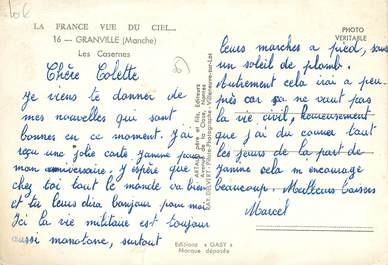 LA FRANCE VUE DU CIEL...
16 — GRANVILLE (Manche)
Les Casernes
PHOTO
VERITABLE
Chère Colette
Je viens te donner de
mes nouvelles qui sont
bonnes en ce moment. J'ai
reçu une jolie carte Janine pour
mon anniversaire. J'espère que
chez toi tout le monde va bien
et tu leurs dira bonjour pour moi
Ici la vie militaire est toujour
aussi monotone, surtout
leurs marches a pied, sous
un soleil de plomb.
Autrement cela irai a peu
près car ça ne vaut pas
la vie civil, heureusement
que j'ai du courrier tout
les jours de la part de
Janine cela m encourage
beaucoup. Meilleurs baisers
Marcel
ARTAUD père et fils, Editeurs
Avenue de la Close, Nantes
RAY DELVERT, Pilote-Photographe Villeneuve-sur-Lot
Editions « GABY »
Marque déposée